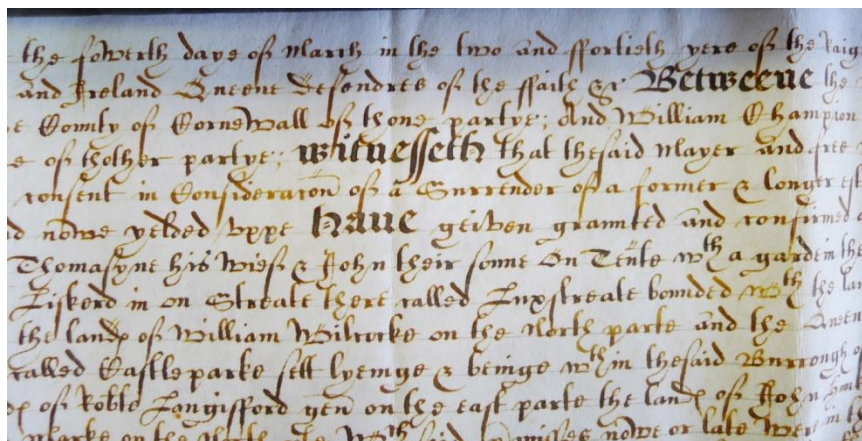 the fowerth daye of March in the two and ffortieth yere of the Raig
and Ireland Queene defendres of the ffaith &c Betweene the
County of Cornewall of thone partye; And William Champion
e of thother partye; witnesseth that thesaid Mayer and free
consent in Consideracon of a Surrender of a former & longer est
d nowe yelded vppe haue geiven graunted and confirmed
Thomasyne his wief & John their sonne On Tente wth a gardein the
Liskerd in on Streate there called Luxstreate bounded wth the lan
the land of William Wilcocke on the North parte and the Queen
called Castleparke sett lyeinge & beinge wthin thesaid Burrough of
of Robte Langisford gen on the east parte the land of John
parke on the North wth said nowe or late were in t